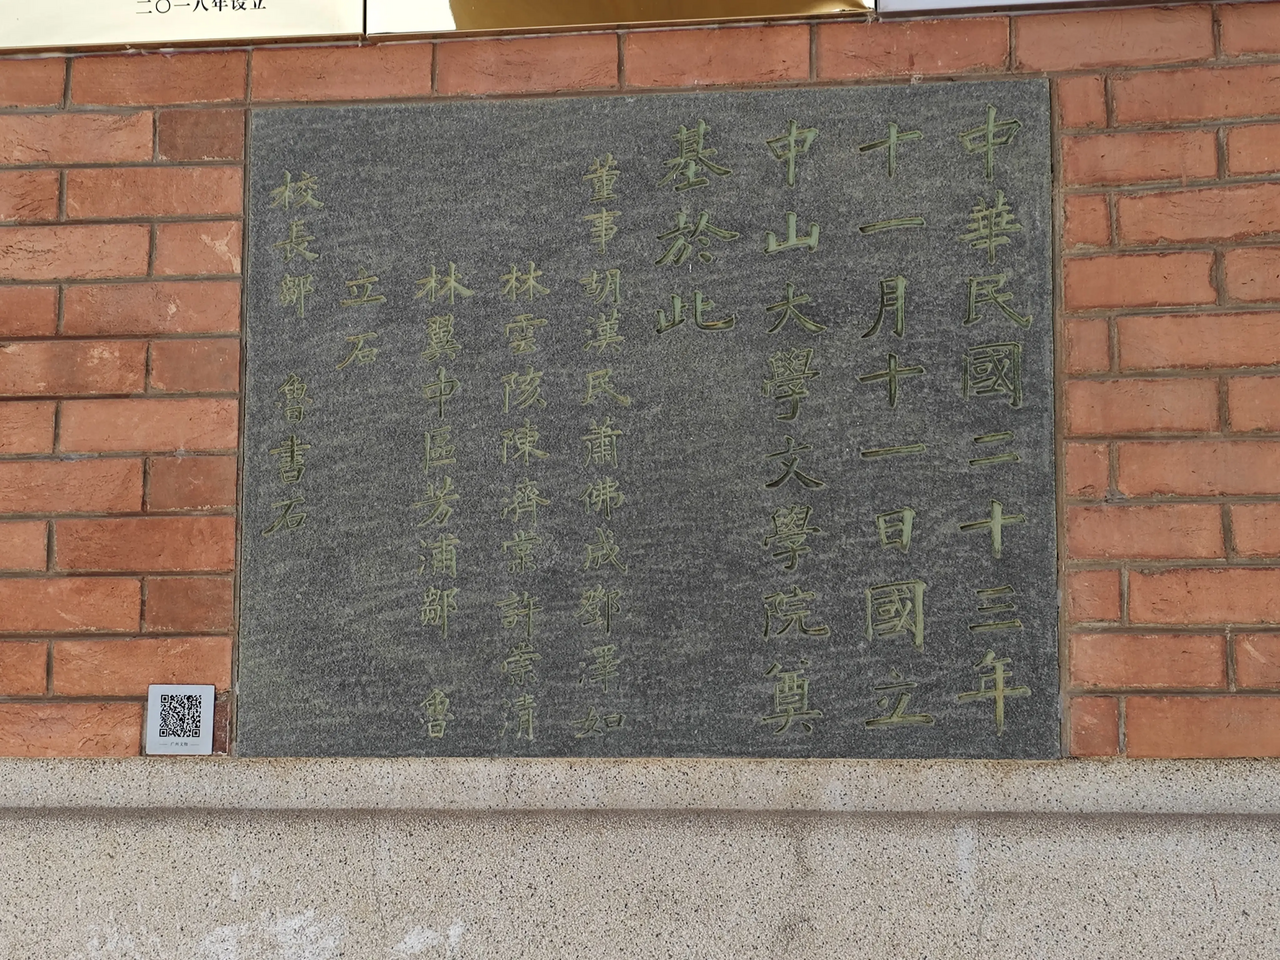 二〇一八年设立
中華民國二十三年
十一月十一日國立
中山大學文學院奠
基於此
董事胡漢民蕭佛成鄧澤如
林雲陔陳濟棠許崇清
林翼中區芳浦鄒魯
立石
校長鄒魯書石